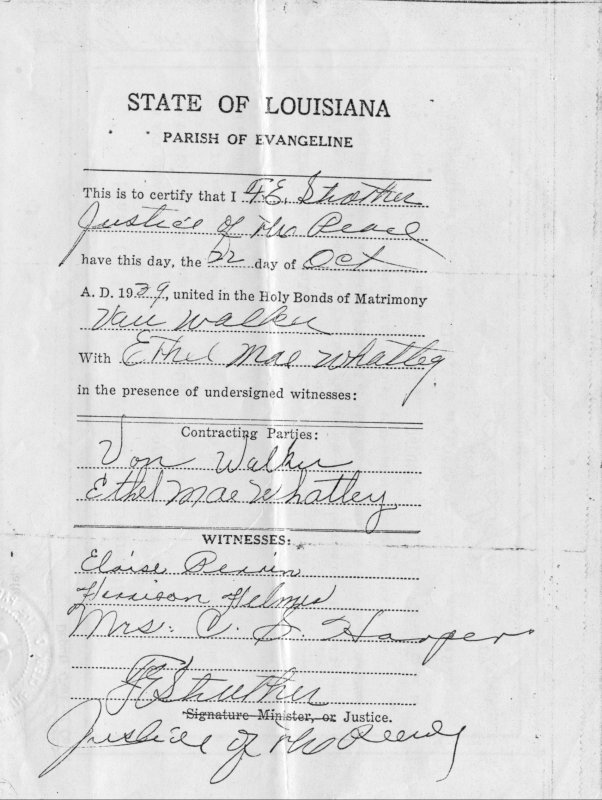 STATE OF LOUISIANA
PARISH OF EVANGELINE
This is to certify that I F.E. Strother
Justice of the Peace
have this day, the 22 day of Oct
A. D. 1939, united in the Holy Bonds of Matrimony
Van Walker
With Ethel Mae Whatley
in the presence of undersigned witnesses:
Contracting Parties:
Von Walker
Ethel Mae Whatley
WITNESSES:
Eloise Perrin
Harrison Helms
Mrs. C. S. Harper
F E Strother
Signature Minister, or Justice.
Justice of the Peace